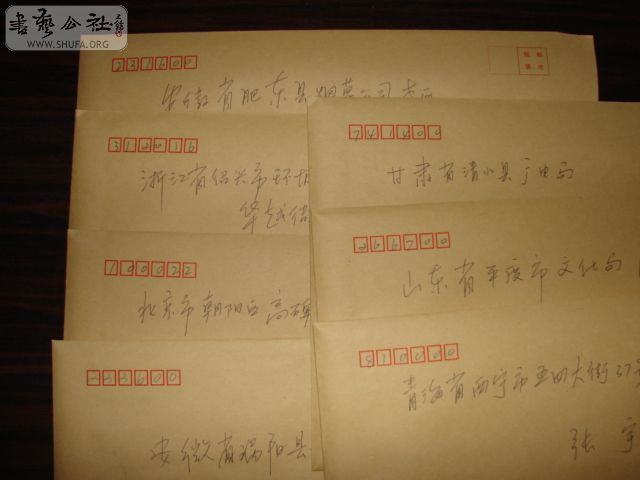 書藝公社
WWW.SHUFA.ORG
231600
安徽省肥东县烟草公司
312016
浙江省绍兴市环城
华越
100022
北京市朝阳区高碑
233600
安徽省涡阳县
741400
甘肃省清水县广电局
266700
山东省平度市文化局
810000
青海省西宁市五四大街37号
张宇